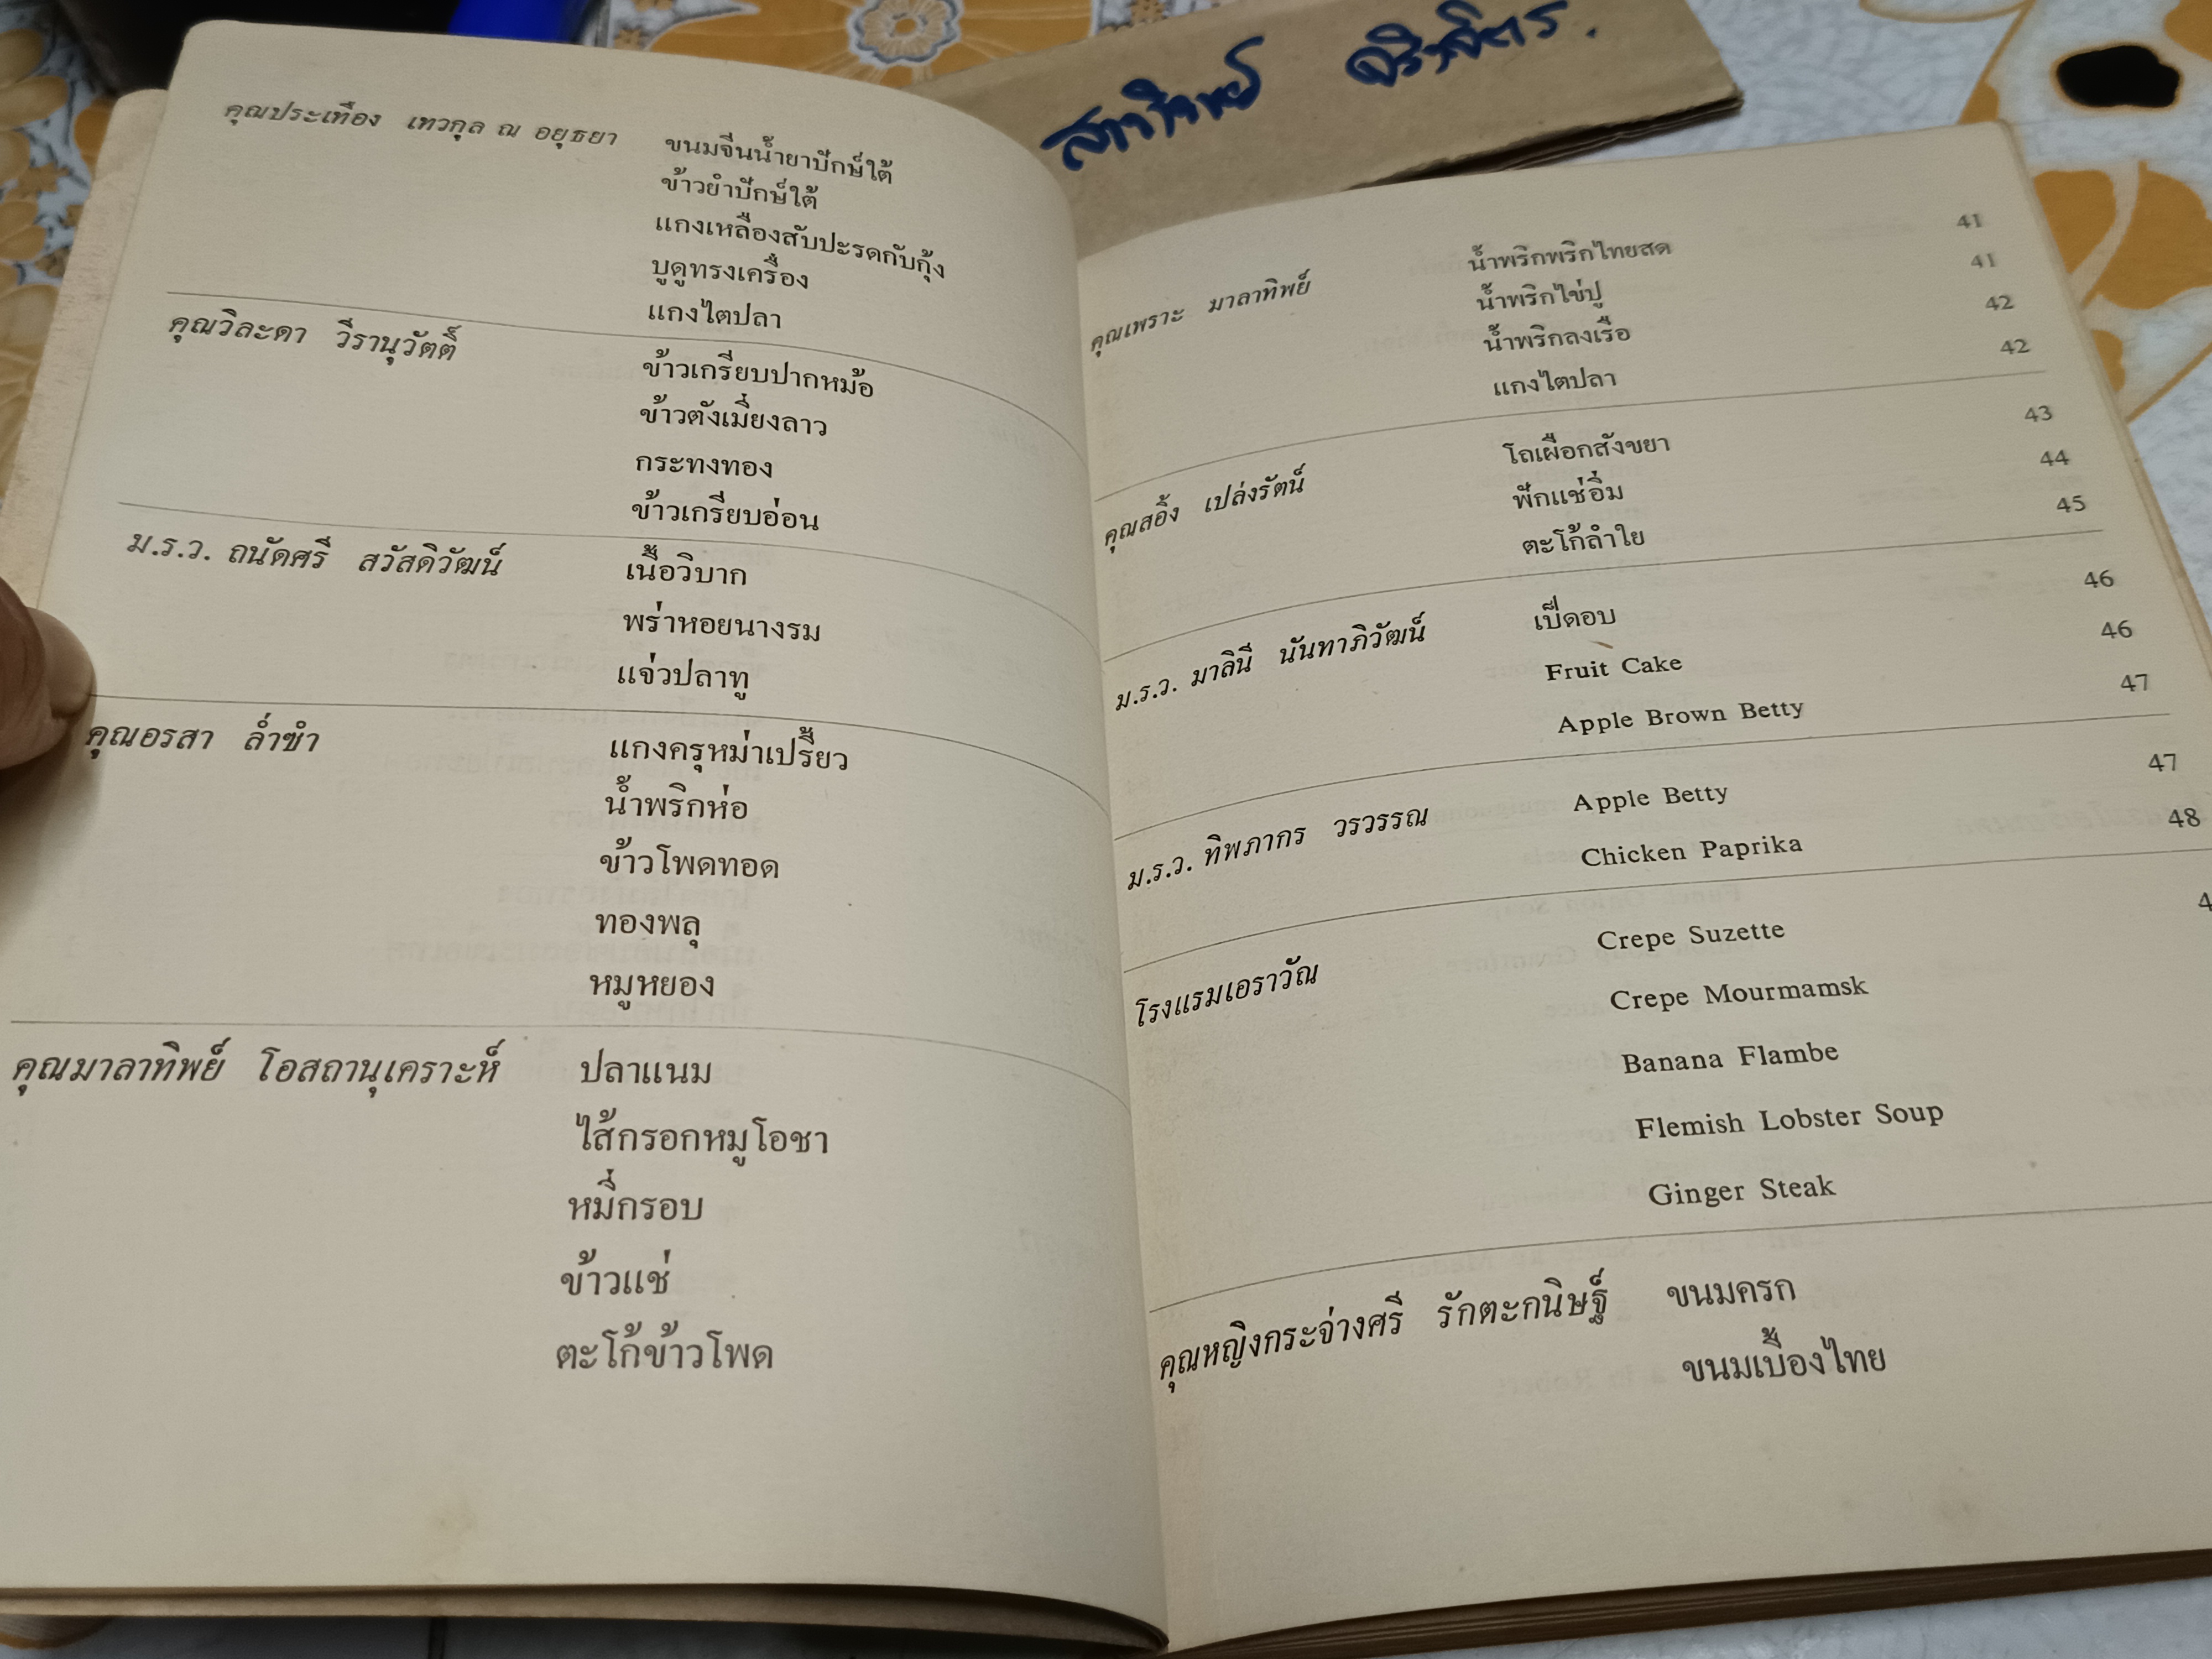 สาทิพย์
คุณประเทือง เทวกุล ณ อยุธยา ขนมจีนน้ำยาปักษ์ใต้
ข้าวยำปักษ์ใต้
แกงเหลืองสับปะรดกับกุ้ง
บูดูทรงเครื่อง
แกงไตปลา
คุณวิละดา วีรานุวัตติ์ ข้าวเกรียบปากหม้อ
ข้าวตังเมี่ยงลาว
กระทงทอง
ข้าวเกรียบอ่อน
ม.ร.ว. ถนัดศรี สวัสดิวัฒน์ เนื้อวิบาก
พร่าหอยนางรม
แจ่วปลาทู
คุณอรสา ล่ำซำ แกงครุหม่าเปรี้ยว
น้ำพริกห่อ
ข้าวโพดทอด
ทองพลุ
หมูหยอง
คุณมาลาทิพย์ โอสถานุเคราะห์ ปลาแนม
ไส้กรอกหมูโอชา
หมี่กรอบ
ข้าวแช่
ตะโก้ข้าวโพด
คุณเพราะ มาลาทิพย์ น้ำพริกพริกไทยสด 41
น้ำพริกไข่ปู 41
น้ำพริกลงเรือ 42
แกงไตปลา 42
คุณสอิ้ง เปล่งรัตน์ โถเผือกสังขยา 43
ฟักแช่อิ่ม 44
ตะโก้ลำใย 45
ม.ร.ว. มาลินี นันทาภิวัฒน์ เป็ดอบ 46
Fruit Cake 46
Apple Brown Betty 47
ม.ร.ว. ทิพภากร วรวรรณ Apple Betty 47
Chicken Paprika 48
โรงแรมเอราวัณ Crepe Suzette 4
Crepe Mourmamsk
Banana Flambe
Flemish Lobster Soup
Ginger Steak
คุณหญิงกระจ่างศรี รักตะกนิษฐ์ ขนมครก
ขนมเบื้องไทย